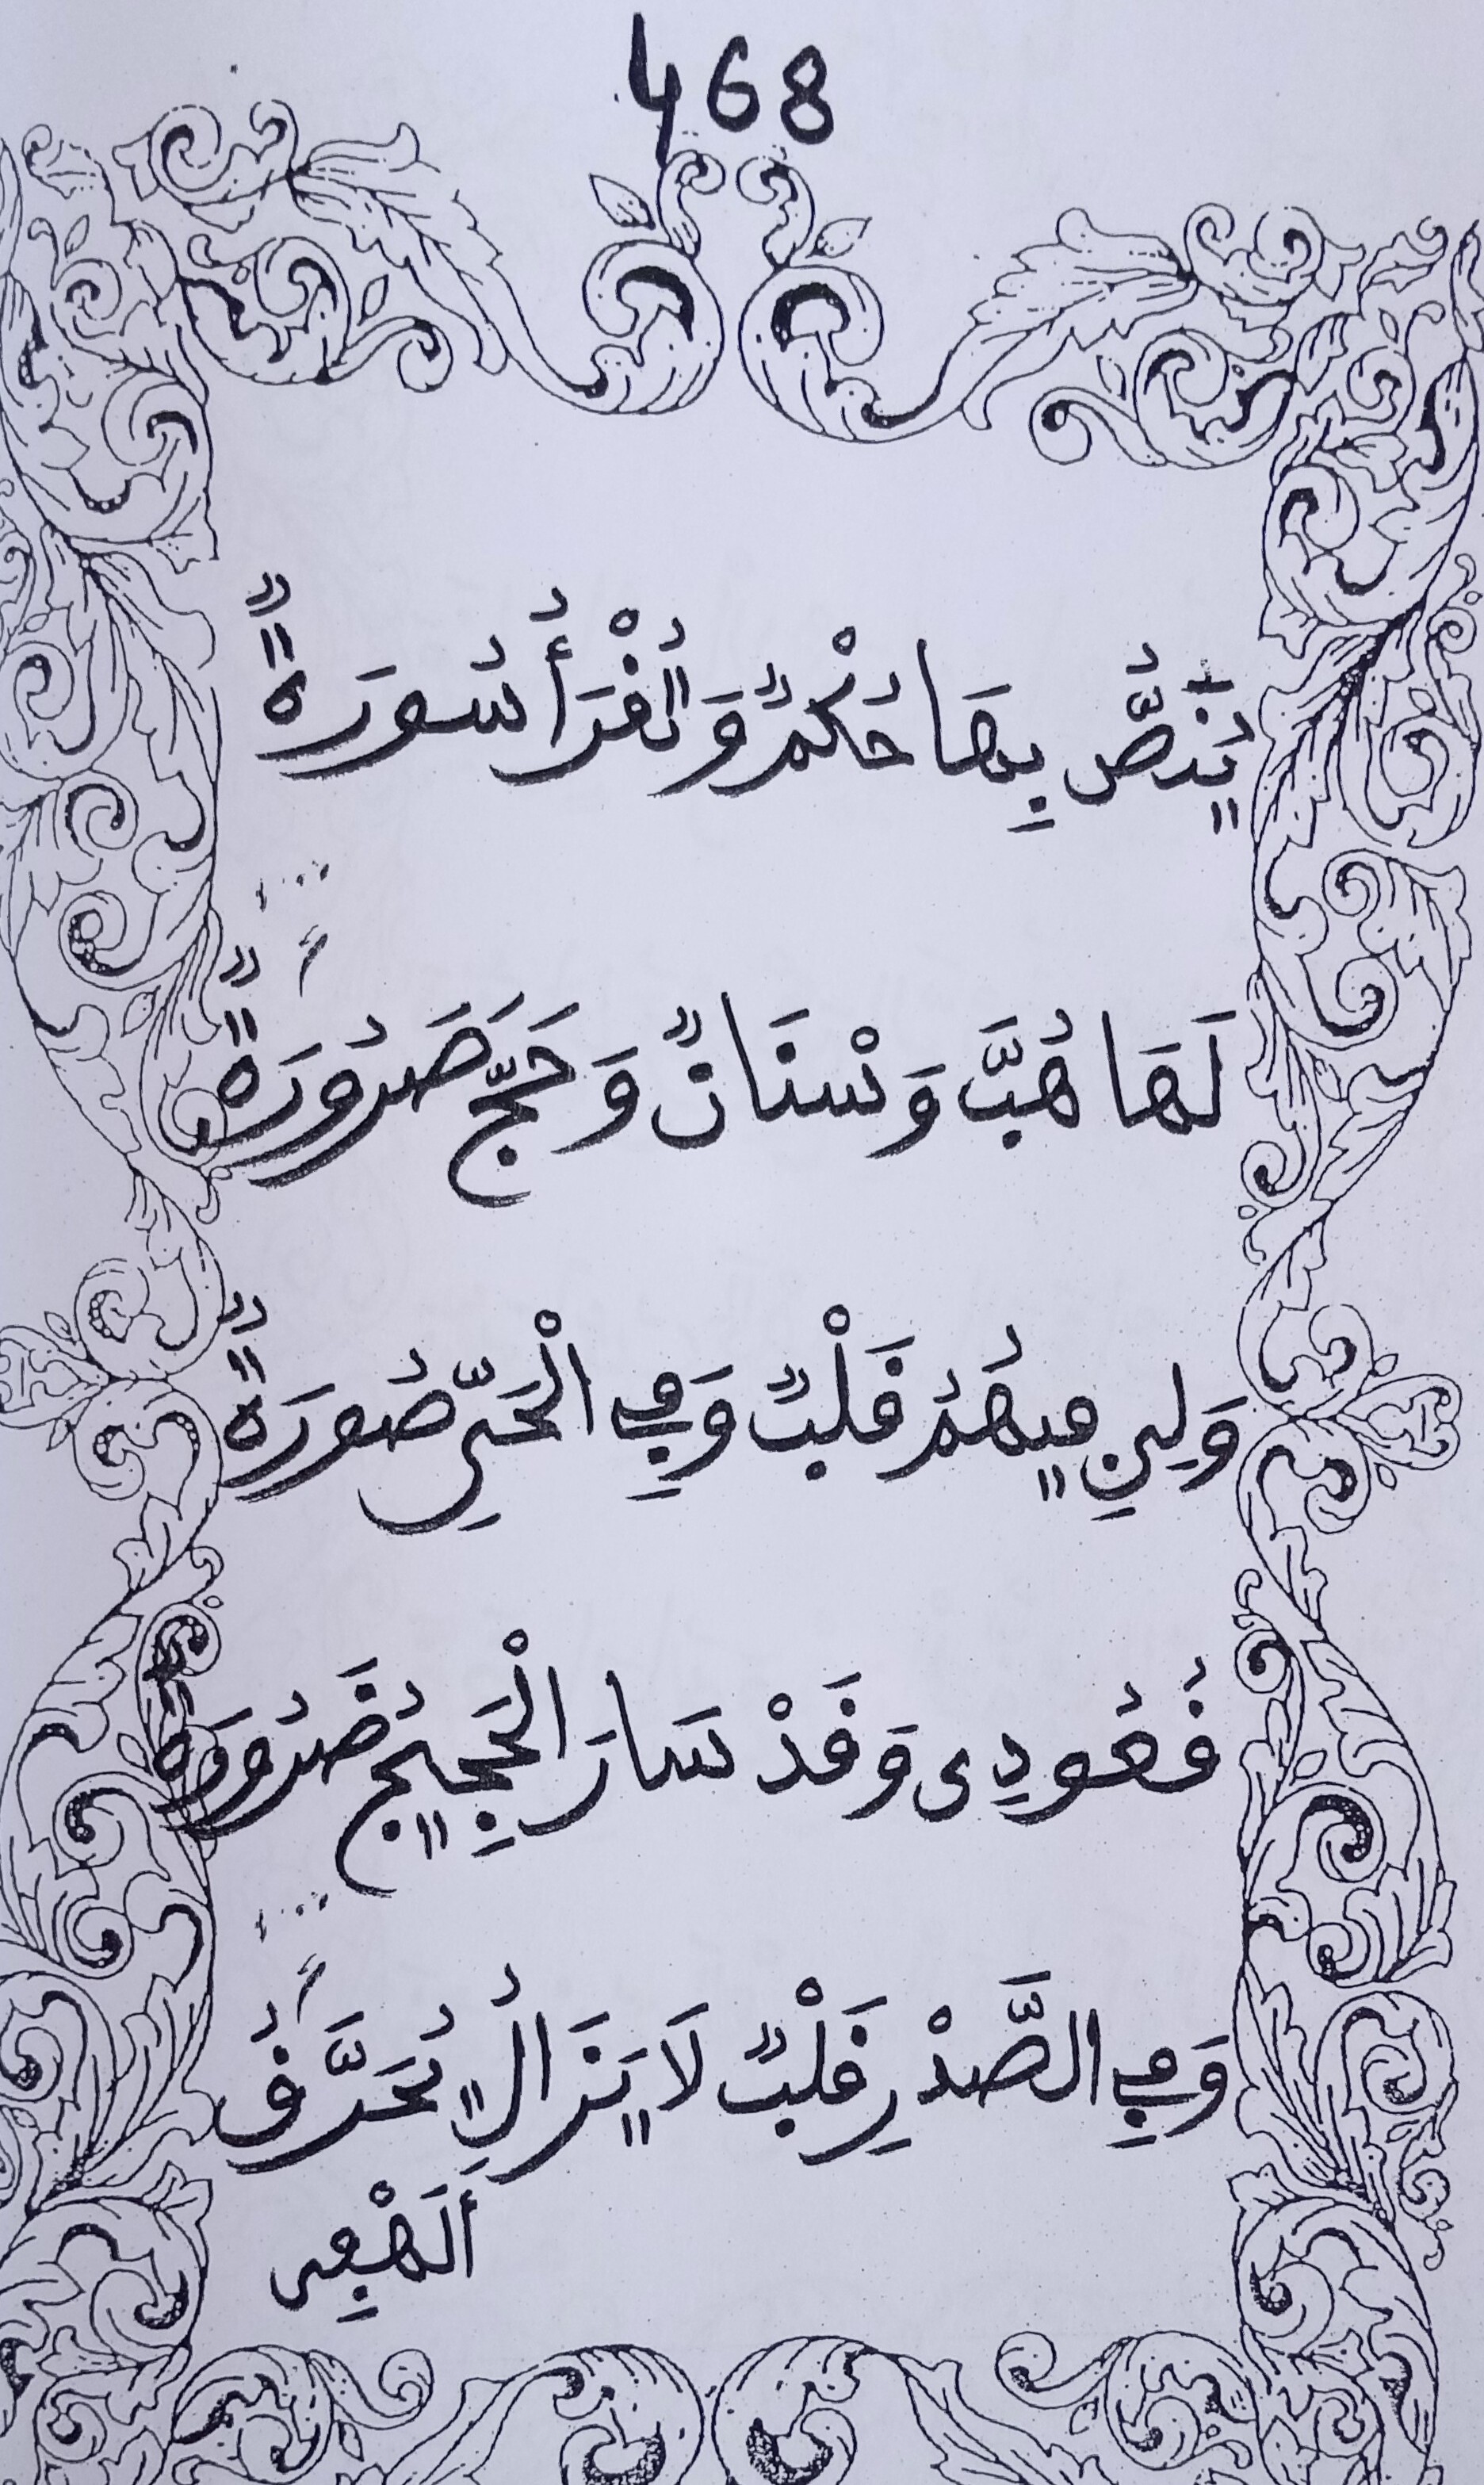 468
يُنَصُّ بِهَا حُكْمٌ وَتُقْرَأُ سُورَةٌ
لَهَا هُبَّ وَسْنَانٌ وَحَجَّ صَرُورَةٌ
وَلِي فِيهُمُ قَلْبٌ وَفِي الْحَيِّ صُورَةٌ
قُعُودِي وَقَدْ سَارَ الْحَجِيجُ ضَرُورَةٌ
وَفِي الصَّدْرِ قَلْبٌ لَا يَزَالُ يُحَرَّقُ
أَلَهْفِي